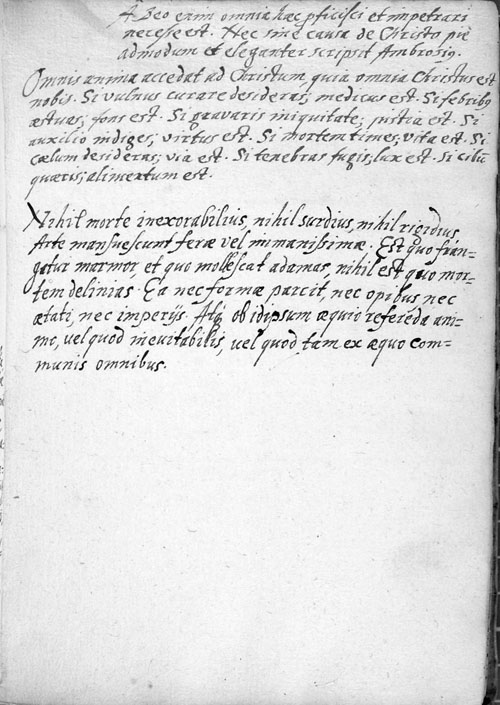 A Deo enim omnia hæc pficisci et impetrari
necesse est. Nec sine causa de Christo pie
admodum et eleganter scripsit Ambrosiq.
Omnis anima accedat ad Christum quia omnia Christus est
nobis. Si vulnus curare desideras, medicus est. Si febribq
æstuas, fons est. Si gravaris iniquitate, iustitia est. Si
auxilio indiges, virtus est. Si mortem times, vita est. Si
cælum desideras, via est. Si tenebras fugis, lux est. Si cibū
quæris, alimentum est.
Nihil morte inexorabilius, nihil surdius, nihil rigidius
Arte mansuescunt feræ vel immanissimæ. Est quo fran-
gatur marmor, et quo mollescat adamas, nihil est quo mor-
tem delinias. Ea nec formæ parcit, nec opibus nec
ætati, nec imperijs. Atq ob id ipsum æquio refereda ani-
mo, vel quod inevitabilis, vel quod tam ex æquo com-
munis omnibus.